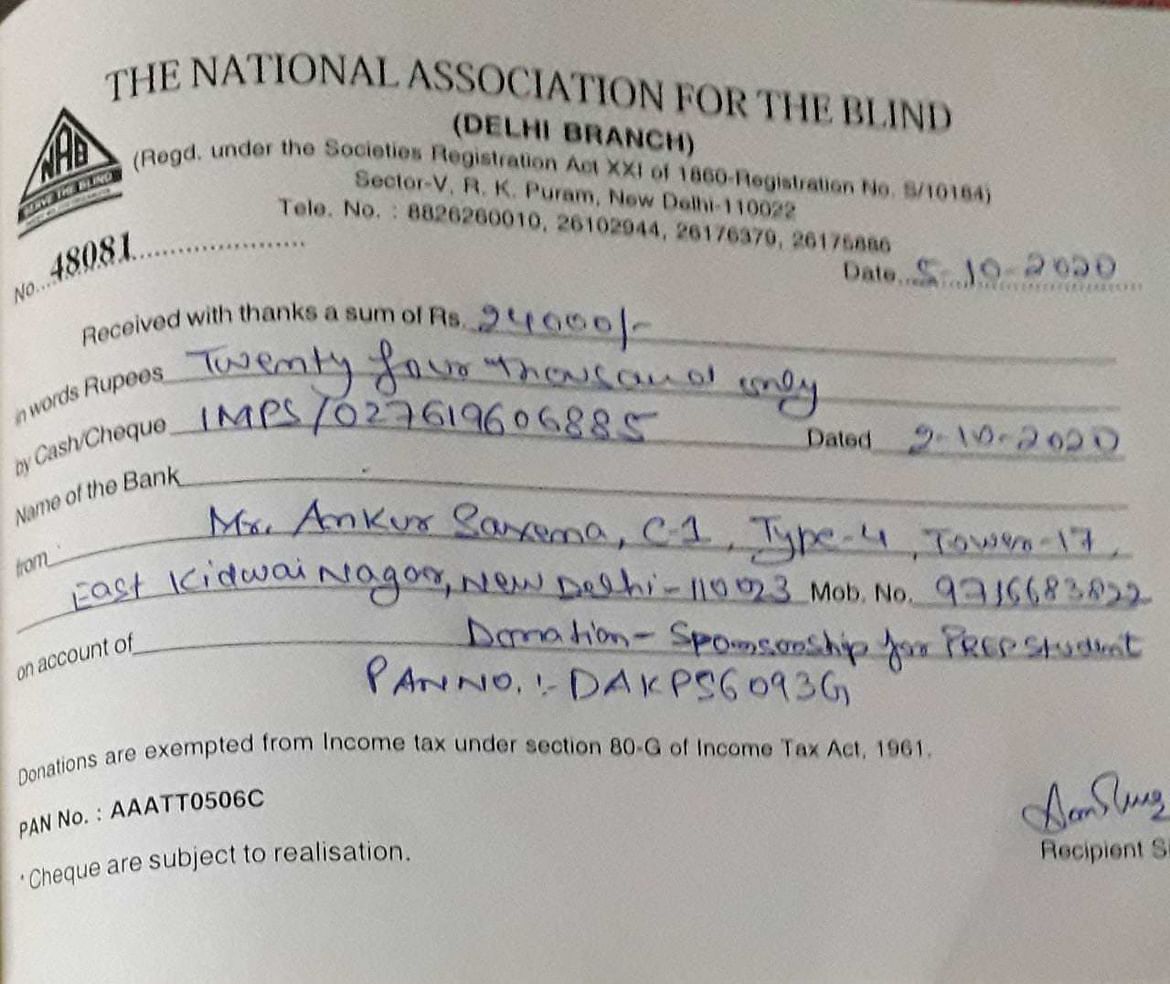 THE NATIONAL ASSOCIATION FOR THE BLIND
(DELHI BRANCH)
(Regd. under the Societies Registration Act XXI of 1860-Registration No. S/10164)
Sector-V, R. K. Puram, New Delhi-110022
Tele. No. : 8826260010, 26102944, 26176379, 26175886
NAB
SERVE THE BLIND
No....48081.....................
Date...5-10-2020
Received with thanks a sum of Rs. 24000/-
in words Rupees Twenty four thousand only
by Cash/Cheque IMPS/027619606885 Dated 2-10-2020
Name of the Bank
from Mr. Ankur Saxena, C-1, Type-4, Tower-17,
East Kidwai Nagar, New Delhi-110023 Mob. No.
on account of Donation- Sponsorship for PREP Student
PAN NO. :- DAKPS6093G
Donations are exempted from Income tax under section 80-G of Income Tax Act, 1961.
PAN No. : AAATT0506C
Recipient
*Cheque are subject to realisation.